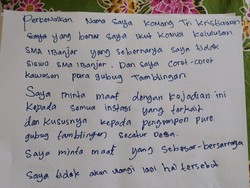 Perkenalkan Nama saya Komang Tri Kristiawan
saya yang benar saya ikut konvoi kelulusan
SMA 1 Banjar yang sebenarnya saya tidak
siswa SMA 1 Banjar. Dan saya coret-coret
kawasan pura gubug Tamblingan
Saya minta maaf dengan kejadian ini
kepada semua instasi yang terkait
dan kususnya kepada pengempon pure
gubug tamblingan secatur Desa.
Saya minta maaf yang sebesar-besarnya
Saya tidak akan ulangi lagi hal tersebut